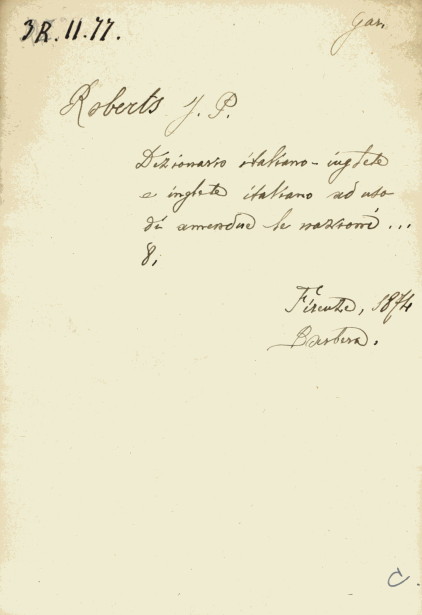 3R.11.77.
Gar.
Roberts J. P.
Dizionario italiano-inglese
e inglese italiano ad uso
di amendue le nazioni ...
8.
Firenze, 1874
Barbera.
C.